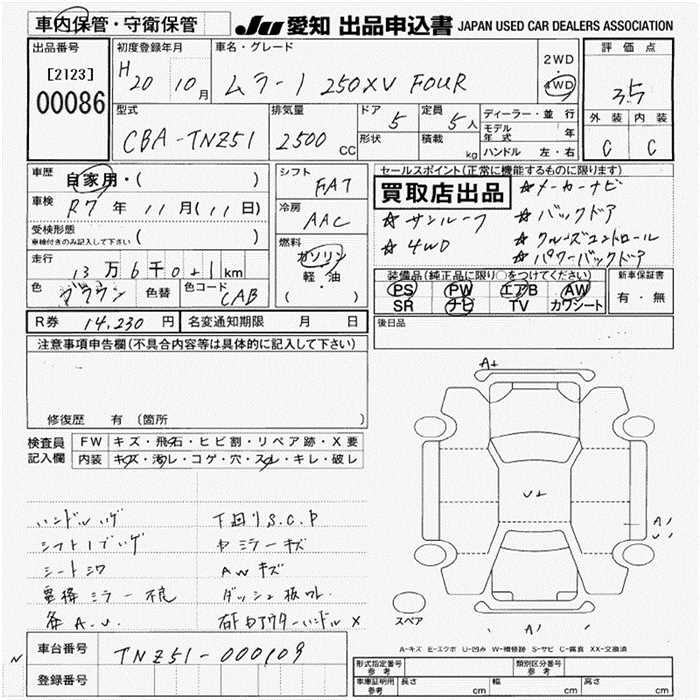 車内保管・守衛保管
JU 愛知 出品申込書 JAPAN USED CAR DEALERS ASSOCIATION
出品番号
[2123]
00086
初度登録年月
H20 10月
車名・グレード
ムラーノ 250XV FOUR
2WD
4WD
評価点
3.5
外装 内装
C C
型式
CBA-TNZ51
排気量
2500 CC
ドア 5
形状
定員 5人
積載 kg
ディーラー・並行
モデル年式 年
ハンドル 左・右
車歴 自家用・( )
車検 R7年 11月 (11日)
受検形態
車検付きのみ記入して下さい ( )
走行 13万6千0十1km
色 ブラウン 色替 色コード CAB
シフト
FAT
冷房
AAC
燃料
ガソリン
軽・油
( ・ )
セールスポイント(正常に機能するものに限ります)
買取店出品
☆サンルーフ
☆4WD
☆メーカーナビ
☆バックドア
☆クルーズコントロール
☆パワーバックドア
装備品(純正品に限り○をつけてください)
PS PW エアB AW
SR ナビ TV カワシート
新車保証書
有・無
R券 14,230円 名変通知期限 月 日
後日品
注意事項申告欄(不具合内容等は具体的に記入して下さい)
修復歴 有 (箇所 )
検査員記入欄
FW キズ・飛石・ヒビ割・リペア跡・X要
内装 キズ・汚レ・コゲ・穴・スレ・キレ・破レ
ハンドルハゲ
シフトノブハゲ
シートシワ
ミラー不良
各A.U.
下回りS.C.P
ミラーキズ
AWキズ
ダッシュ板
アウターハンドルX
A+
U+
A1
U1
A1
スペア
A-キズ E-エクボ U-凹み W-補修跡 S-サビ C-腐食 XX-交換済
車台番号 TNZ51-000109
登録番号
N
形式指定番号 参考
類別区分番号 参考
車庫証明用 参考 長さ cm 幅 cm 高さ cm